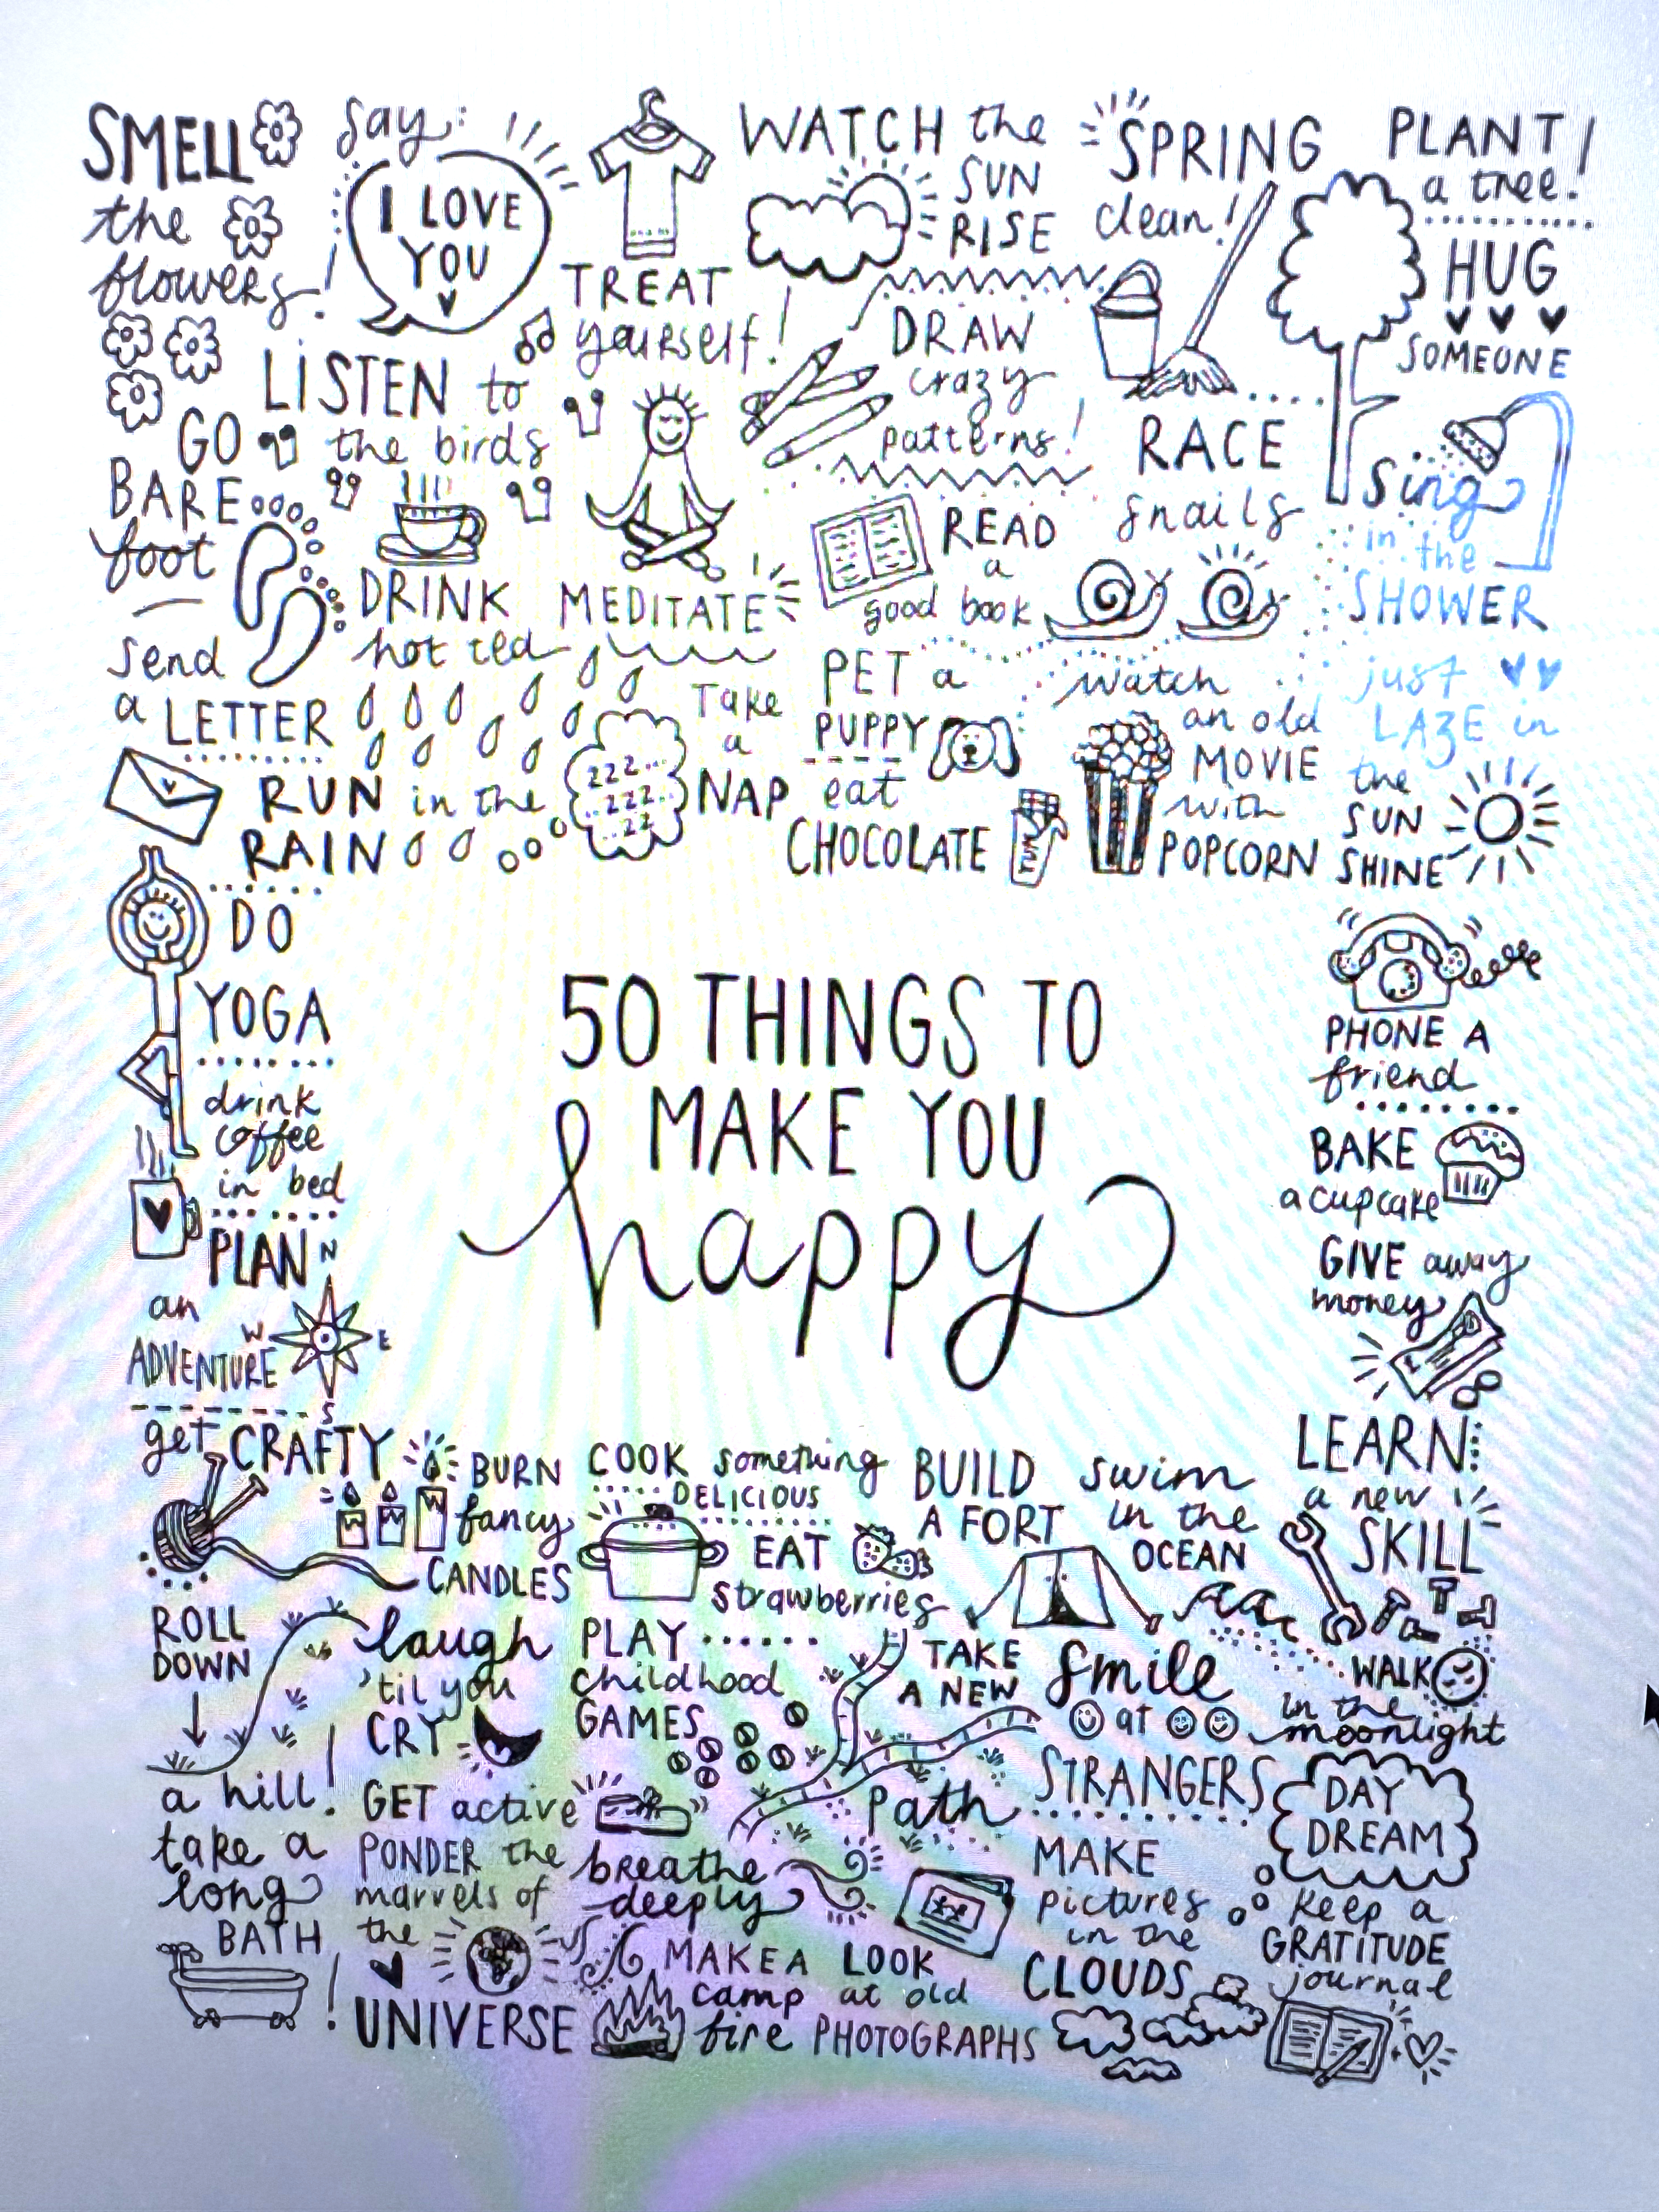 SMELL
the
flowers!
say:
I LOVE
YOU
TREAT
yourself!
WATCH the
SUN
RISE
SPRING
clean!
PLANT
a tree!
HUG
SOMEONE
LISTEN to
the birds
DRAW
crazy
patterns!
GO
BARE
foot
DRINK
hot tea
MEDITATE
READ
a
good book
RACE
snails
Sing
in the
SHOWER
send
a LETTER
RUN in the
RAIN
zzz...
..zzz..
..zz
Take
a
NAP
PET a
PUPPY
eat
CHOCOLATE
watch
an old
MOVIE
with
POPCORN
just
LAZE in
the
SUN
SHINE
DO
YOGA
drink
coffee
in bed
PLAN
an
ADVENTURE
N
W E
S
50 THINGS TO
MAKE YOU
happy
PHONE A
friend
BAKE
a cupcake
GIVE away
money
LEARN
a new
SKILL
get CRAFTY
BURN
fancy
CANDLES
COOK something
DELICIOUS
EAT
strawberries
BUILD
A FORT
swim
in the
OCEAN
ROLL
DOWN
a hill!
laugh
'til you
CRY
PLAY
childhood
GAMES
TAKE
A NEW
path
smile
at
STRANGERS
WALK
in the
moonlight
GET active
DAY
DREAM
take a
long
BATH!
PONDER the
marvels of
the
UNIVERSE
breathe
deeply
MAKE A
camp
fire
LOOK
at old
PHOTOGRAPHS
MAKE
pictures
in the
CLOUDS
keep a
GRATITUDE
journal